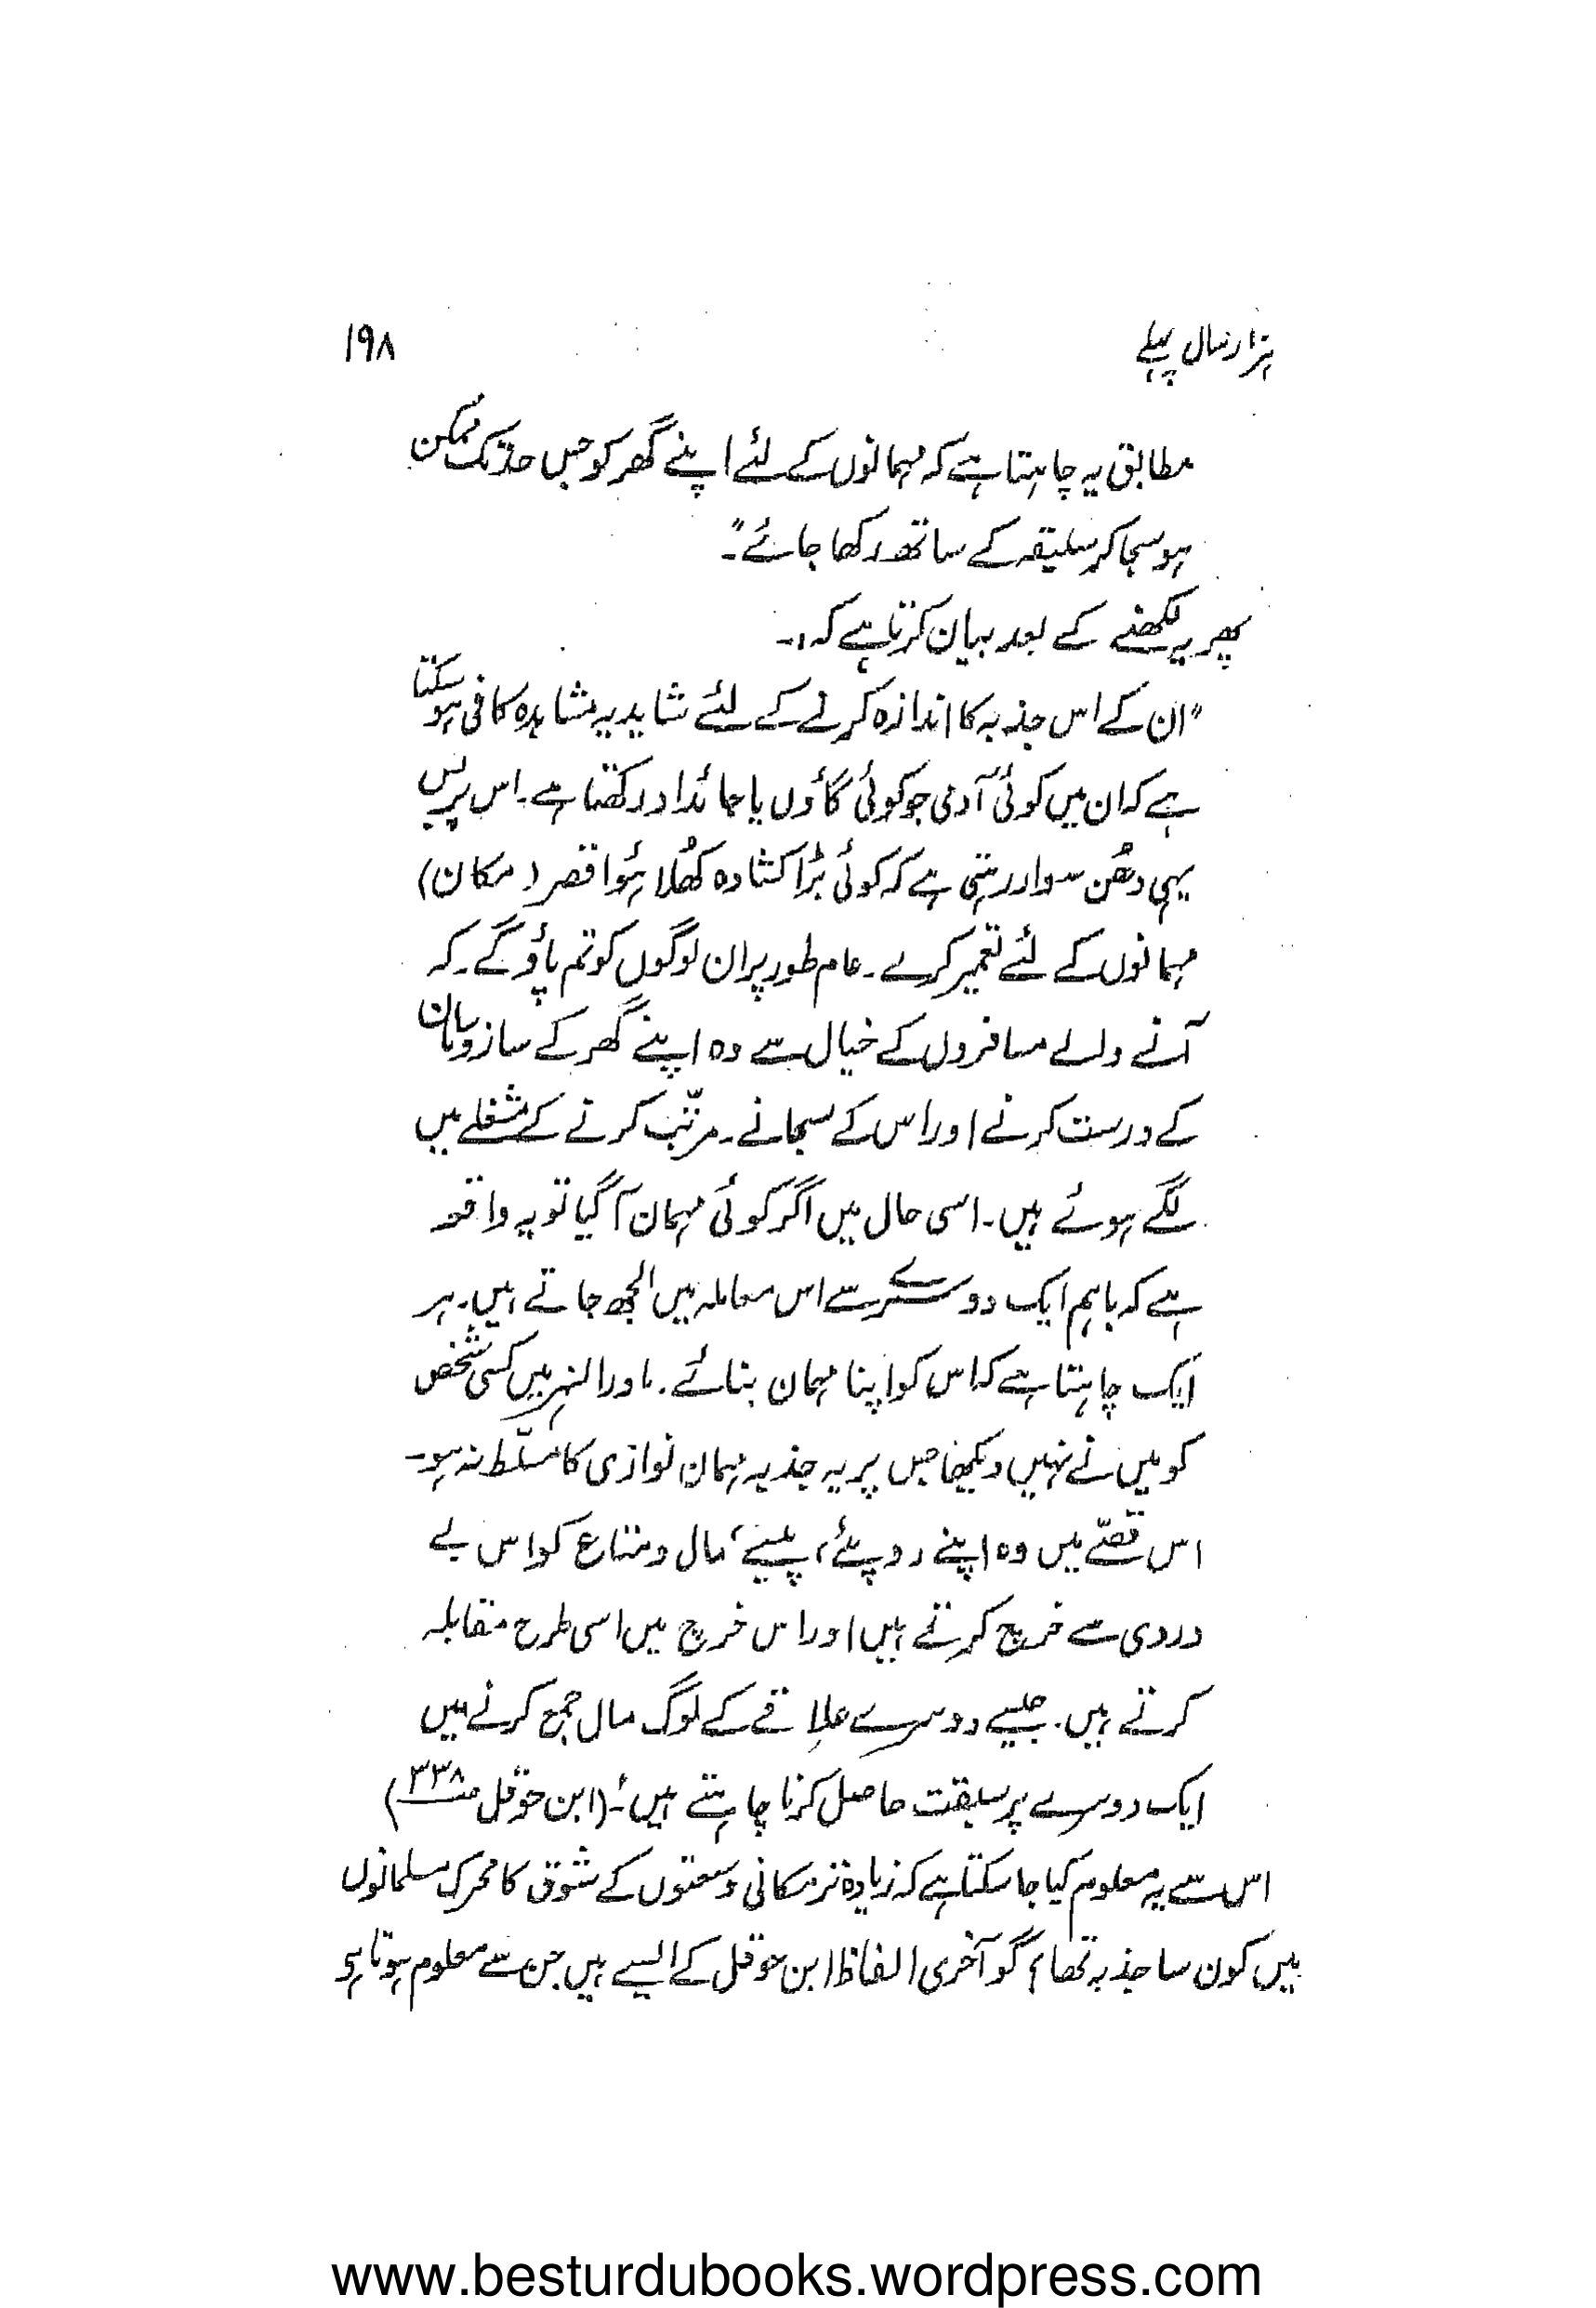 ہزار سال پہلے
۱۹۸
مطابق یہ چاہتا ہے کہ مہمانوں کے لئے اپنے گھر کو جس حد تک ممکن
ہو سجا کر سلیقہ کے ساتھ رکھا جائے"۔
پھر یہ لکھنے کے بعد بیان کرتا ہے کہ :۔
"ان کے اس جذبہ کا اندازہ کرنے کے لئے شاید یہ مشاہدہ کافی ہو سکتا
ہے کہ ان میں کوئی آدمی جو کوئی گاؤں یا جائداد رکھتا ہے۔ اس پر بس
یہی دھُن سوار رہتی ہے کہ کوئی بڑا کشادہ کھُلا ہُوا قصر (مکان)
مہمانوں کے لئے تعمیر کرے۔ عام طور پر ان لوگوں کو تم پاؤ گے۔ کہ
آنے والے مسافروں کے خیال سے وہ اپنے گھر کے سازوسامان
کے درست کرنے اور اس کے سجانے۔ مرتّب کرنے کے مشغلے میں
لگے ہوئے ہیں۔ اسی حال میں اگر کوئی مہمان آ گیا تو یہ واقعہ
ہے کہ باہم ایک دوسرے سے اس معاملہ میں الجھ جاتے ہیں۔ ہر
ایک چاہتا ہے کہ اس کو اپنا مہمان بنائے۔ ماورالنہر میں کسی شخص
کو میں نے نہیں دیکھا جس پر یہ جذبہ مہمان نوازی کا مسلّط نہ ہو۔
اس قصّے میں وہ اپنے روپئے، پیسے، مال و متاع کو اس بے
دردی سے خرچ کرتے ہیں اور اس خرچ میں اسی طرح مقابلہ
کرتے ہیں۔ جیسے دوسرے علاقے کے لوگ مال جمع کرنے میں
ایک دوسرے پر سبقت حاصل کرنا چاہتے ہیں"۔ (ابن حوقل ص۳۳۸)
اس سے یہ معلوم کیا جا سکتا ہے کہ زیادہ تر مکانی وسعتوں کے شوق کا محرک مسلمانوں
میں کون سا جذبہ تھا، گو آخری الفاظ ابن حوقل کے ایسے ہیں جن سے معلوم ہوتا ہو
www.besturdubooks.wordpress.com